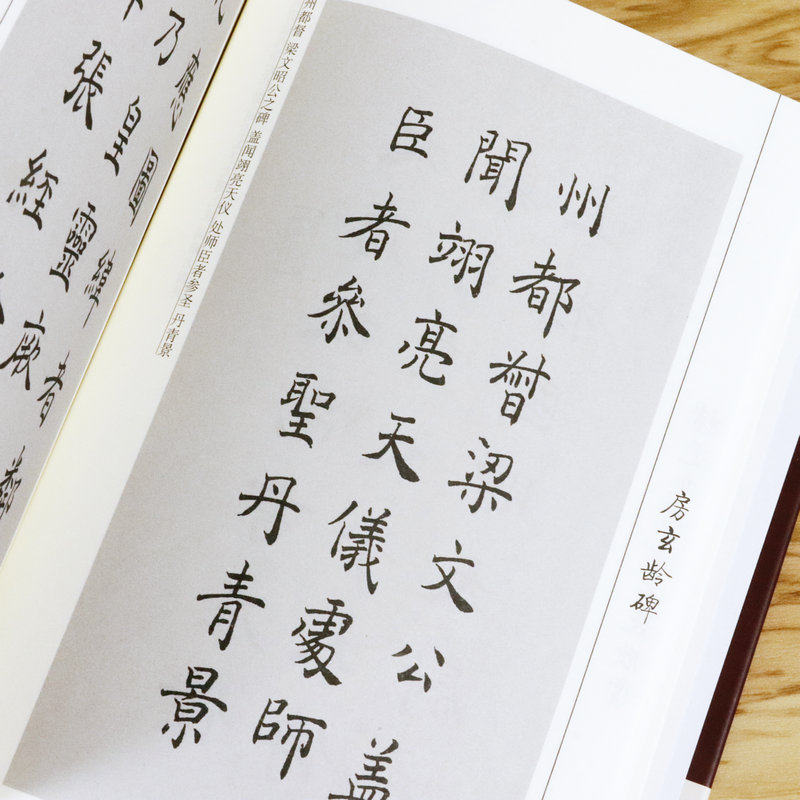 房玄龄碑
州都督梁文公蓋
聞翊亮天儀處師
臣者參聖丹青景
州都督 梁文昭公之碑 盖闻翊亮天仪 处师臣者参圣 丹青景
應圖緯者
乃皇靈厥
張經